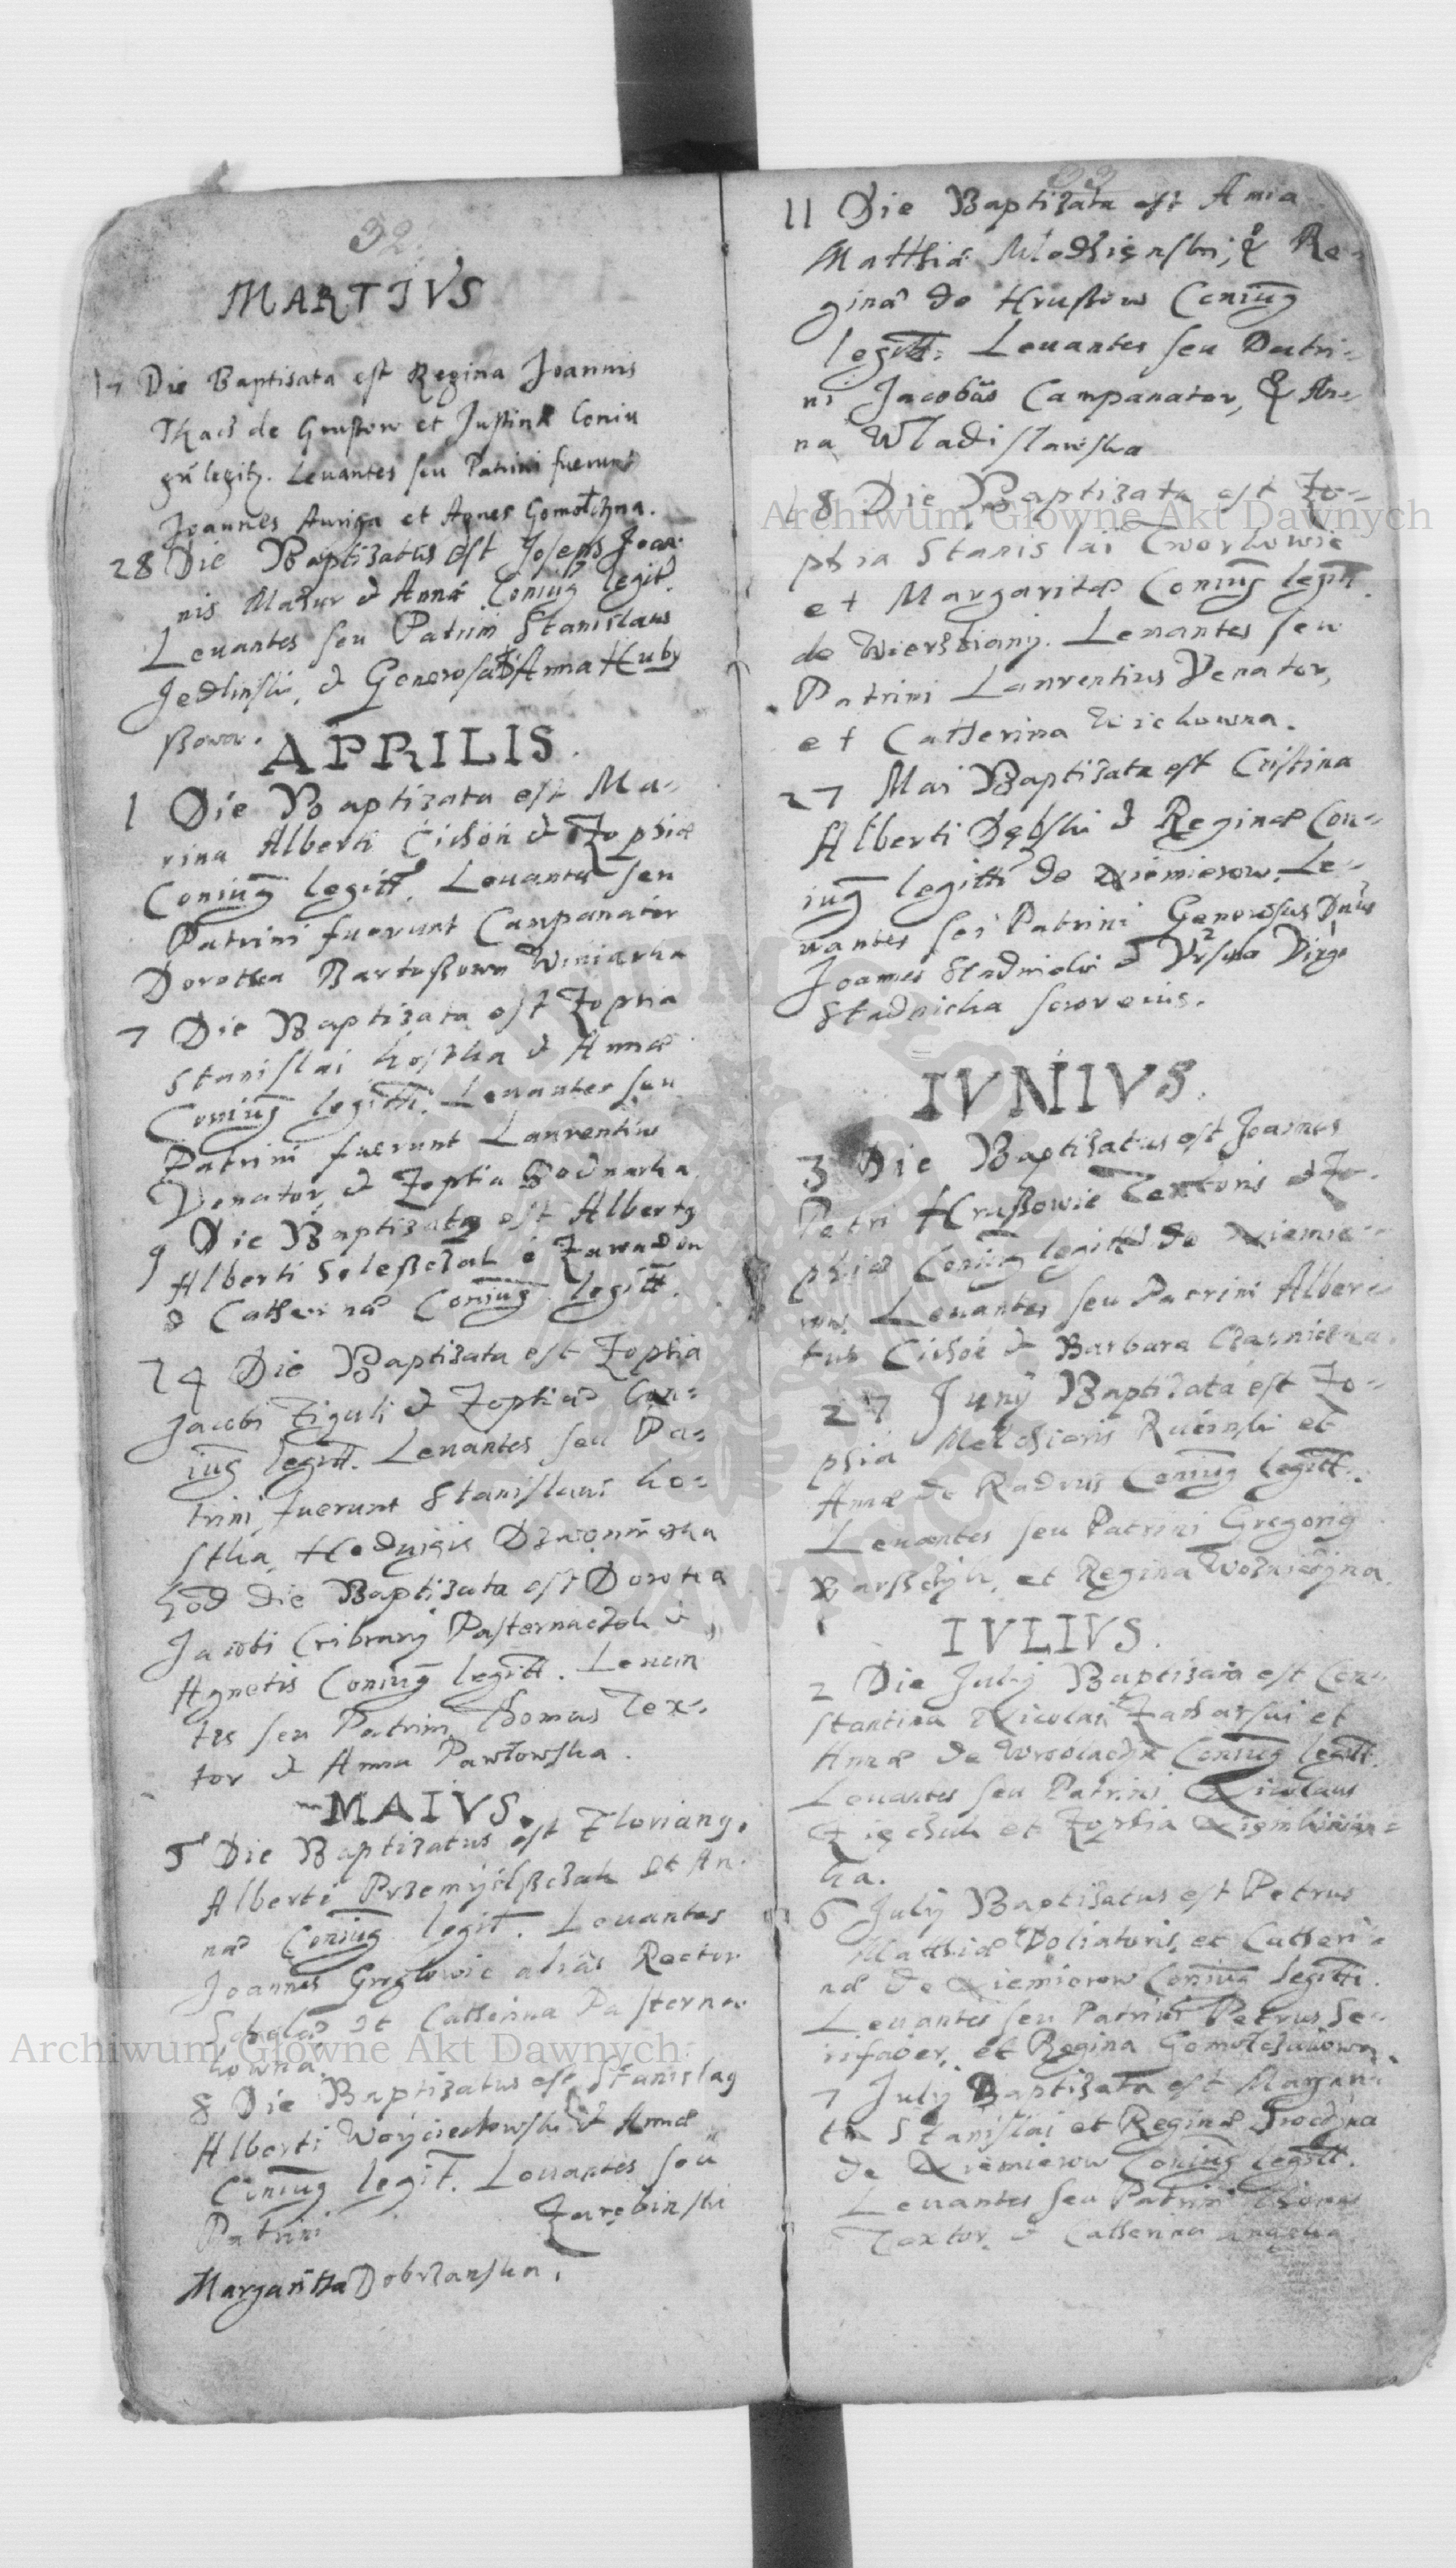 32
MARTIVS
17 Die Baptisata est Regina Joannis
Tkacz de Grustow et Justinæ Coniu
gū legitz. Leuantes seu Patrini fuerunt
Joannes Auriga et Agnes Gomołczyna.
28 Die Baptizatus est Joseph Joan-
nis Mazur & Annæ Coniug legit.
Leuantes seu Patrini Stanislaus
Jedlinski, & Generosa D Anna Huby
ßowa.
APRILIS.
1 Die Baptizata est Ma-
rina Alberti Cichoń & Zophiæ
Coniug legitt. Leuantes seu
Patrini fuerunt Campanator
Dorothea Bartoßowa Winiarka
7 Die Baptizata est Zophia
Stanislai Kostka & Annæ
Coniug legitt. Leuantes seu
Patrini fuerunt Laurentius
Venator, & Zophia Bodnarka
9 Die Baptizatq est Albertq
Alberti Soleßczak e Zawadou
& Catherinæ Coniug legitt.
24 Die Baptizata est Zophia
Jacobi Figuli & Zophiæ Con-
iug legitt. Leuantes seu Pa-
trini fuerunt Stanislaus Ko-
stka, Hedvigis
hōd die Baptizata est Dorotea
Jacobi Cribrarij Pasternaczek &
Agnetis Coniug legitt. Leuan
tes seu Patrini Thomas Tex-
tor & Anna Pawłowska.
MAIVS.
5 Die Baptizatus est Florianq.
Alberti Przemyslßczak et An-
næ Coniug legit. Leuantes
Joannes Gregtowic alias Rector
Scholæ et Catherina Pasterna-
kowna.
8 Die Baptizatus est Stanislaq
Alberti Woyciechowski & Annæ
Coniug legit. Leuantes seu
Patrini Zarębinski
Margaritta Dobrzanska.
33
11 Die Baptizata est Anna
Matthiæ Młodzięnski, & Re-
ginæ de Hrustow Coniug
legitt. Leuantes seu Patri-
ni Jacobus Campanator, & An-
na Wladislawska
18 Die Baptizata est Zo-
phia Stanislai Cworkowic
et Margaritæ Coniug legitt.
de Wierzbiany. Leuantes seu
Patrini Laurentius Venator,
et Catherina Wichowna.
27 Mai Baptizata est Cristina
Alberti Dębski & Reginæ Con-
iug legitti de Niemierow. Le-
uantes seu Patrini Generosus Dnus
Joannes Stadnicki & Vrsula Virgo
Stadnicka soror eius.
IVNIVS.
3 Die Baptizatus est Joannes
Petri Hrußowic Textoris & Zo-
phiæ Coniug legitt de Niemie-
row. Leuantes seu Patrini Alber-
tus Cichoń & Barbara Czarniecka.
27 Junij Baptizata est Zo-
phia Melchioris Rucinski et
Annæ de Radrus Coniug legitt.
Leuantes seu Patrini Gregoriq
Barßczyk, et Regina Wozniczyna.
IVLIVS.
2 Die Julij Baptizata est Con-
stantina Nicolai Zacharski et
Annæ de Coniug legitt.
Leuantes seu Patrini Nicolaus
et Zophia
ka.
6 Julij Baptizatus est Petrus
Matthiæ Doliatoris et Catheri-
næ de Niemierow Coniug legitti.
Leuantes seu Patrini Petrus Se-
rifaber, et Regina Gomołczakowna.
7 Julij Baptizata est Margari-
ta Stanislai et Reginæ Sroczyna
de Niemierow Coniug legitt.
Leuantes seu Patrini Thomas
Textor, & Catherina
Archiwum Główne Akt Dawnych
Archiwum Główne Akt Dawnych